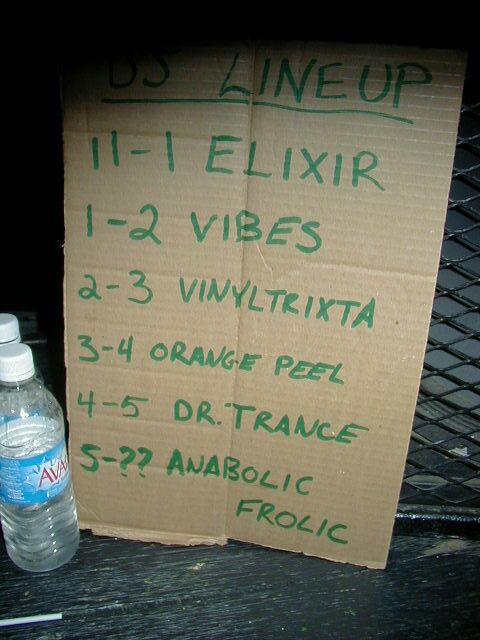 DJ LINEUP
11-1 ELIXIR
1-2 VIBES
2-3 VINYLTRIXTA
3-4 ORANGE PEEL
4-5 DR. TRANCE
5-?? ANABOLIC
FROLIC
AVA